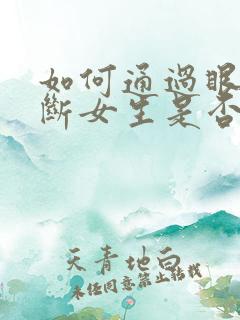 如何通過眼
斷女生是否
天青地白
未经同意禁止转载